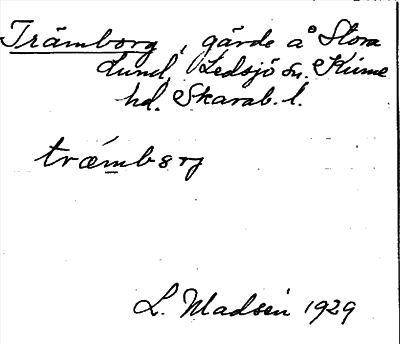 Trämborg, gärde å Stora
Lund, Ledsjö sn. Kinne
hd. Skarab. l.
træmborj
L. Madsén 1929